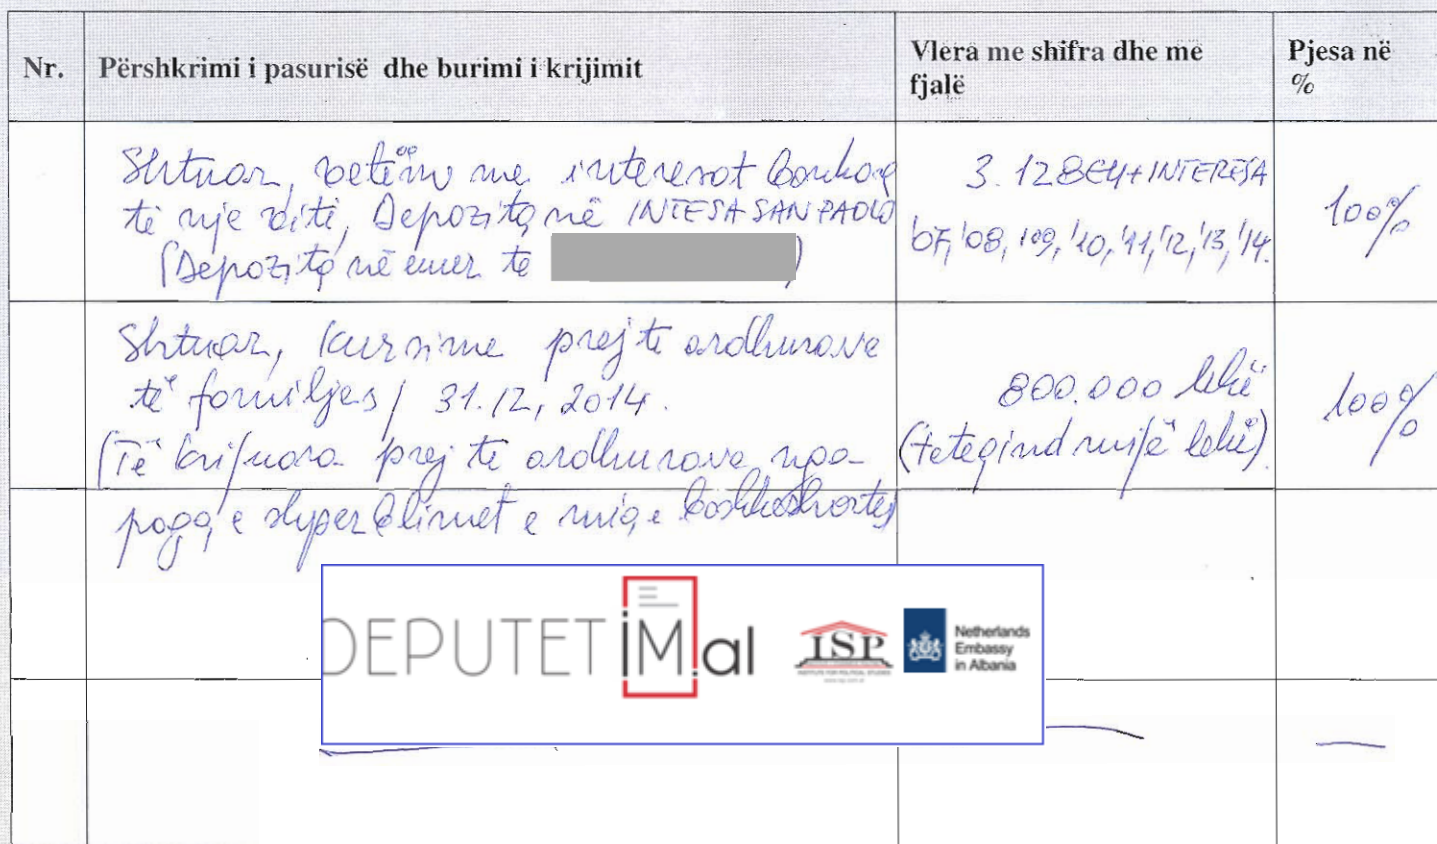 Nr.
Përshkrimi i pasurisë dhe burimi i krijimit
Vlera me shifra dhe me
fjalë
Pjesa në
%
Shtuar, vetëm me interesat bankare
të një viti, Depozita në INTESA SAN PAOLO
(Depozitë në emer të )
3.128 + INTERESA
'07, '08, '09, '10, '11, '12, '13, '14.
100%
Shtuar, kursime prej të ardhurave
të familjes / 31.12, 2014.
(Të krijuara prej të ardhurave nga
paga e shperblimet e mia e bashkëshortes
800.000 lekë
(tetëqind mijë lekë).
100%
DEPUTETiM.al
ISP
INSTITUTE FOR POLITICAL STUDIES
Netherlands
Embassy
in Albania